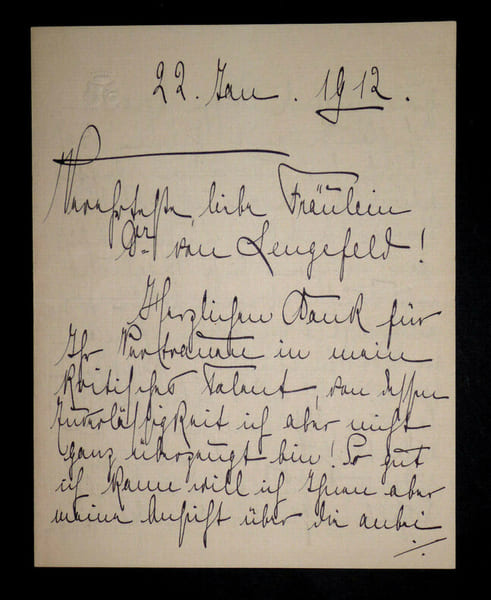 22. Jan. 1912.
Verehrteste, liebe Fräulein
Dr. von Lengefeld!
Herzlichen Dank für
Ihr Vertrauen in mein
kritisches Talent, von dessen
Zuverlässigkeit ich aber nicht
ganz überzeugt bin! So gut
ich kann will ich Ihnen aber
meine Ansicht über die anbei